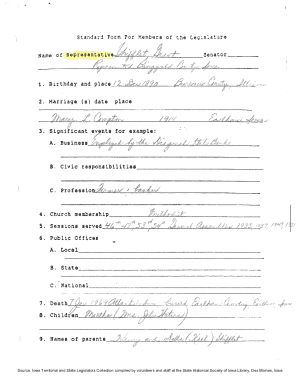 Standard Form For Members of the Legislature
Name of Representative Shifflet Grant Senator
Ringgold County, Iowa
1. Birthday and place 12 Dec 1890 County
2. Marriage (s) date place
Mary L. Compton 1914
3. Significant events for example:
A. Business Employed by the State Bank
B. Civic responsibilities
C. Profession Farmer + banker
4. Church membership Methodist
5. Sessions served 46th 47th 53rd 54th General Assemblies 1935, 1937, 1949, 1951
6. Public Offices
A. Local
B. State
C. National
7. Death 7 Jan 1969
8. Children Martha (Mrs. John
9. Names of parents Henry and Shifflet
Source: Iowa Territorial and State Legislators Collection compiled by volunteers and staff at the State Historical Society of Iowa Library, Des Moines, Iowa.